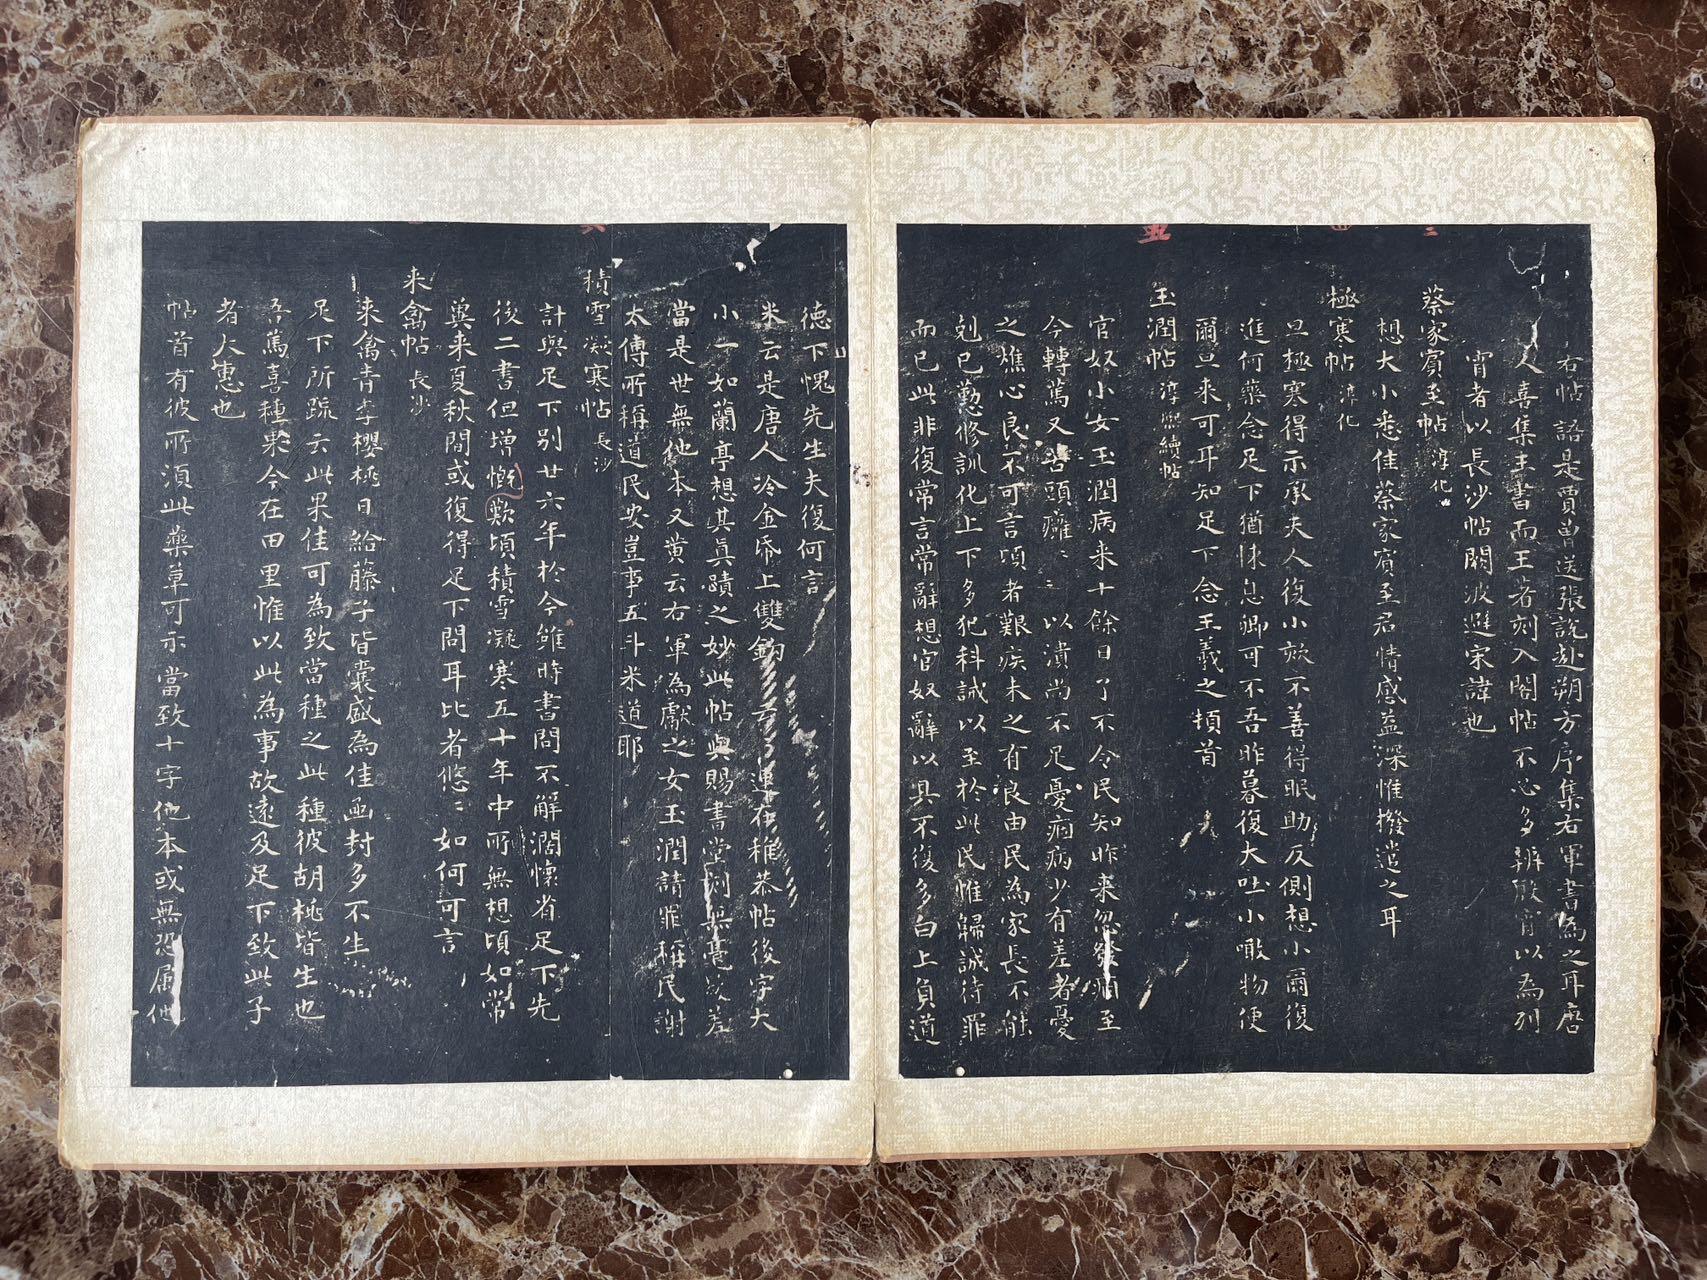 右帖語是賈曾送張說赴朔方序集右軍書為之耳唐
人喜集王書而王著刻入閣帖不必多辨殷宵以為列
宵者以長沙帖闕波避宋諱也
蔡家賓至帖 淳化
想大小悉佳蔡家賓至君情感益深惟撥遣之耳
極寒帖 淳化
旦極寒得示承夫人復小欬不善得眠助反側想小爾復
進何藥念足下猶悚息卿可不吾昨暮復大吐小噉物便
爾旦来可耳知足下念王羲之頓首
玉潤帖 淳熙續帖
官奴小女玉潤病来十餘日了不令民知昨来忽發痼至
今轉篤又苦頭癰〻以潰尚不足憂痼病少有差者憂
之燋心良不可言頃者艱疾未之有良由民為家長不能
剋己懃修訓化上下多犯科誡以至於此民惟歸誠待罪
而已此非復常言常辭想官奴辭以具不復多白上負道
德下愧先生夫復何言
米云是唐人冷金帋上雙鉤 云 連在稚恭帖後字大
小一如蘭亭想其真蹟之妙此帖與賜書堂刻無毫髮差
當是世無他本又黄云右軍為獻之女玉潤請罪稱民謝
太傅所稱道民安豈事五斗米道耶
積雪凝寒帖 長沙
計與足下別廿六年於今雖時書問不解濶懷省足下先
後二書但增慨歎頃積雪凝寒五十年中所無想頃如常
冀来夏秋間或復得足下問耳比者悠〻如何可言
来禽帖 長沙
来禽青李櫻桃日給藤子皆囊盛為佳函封多不生
足下所疏云此果佳可為致當種之此種彼胡桃皆生也
吾篤喜種果今在田里惟以此為事故遠及足下致此子
者大惠也
帖首有彼所須此藥草可示當致十字他本或無恐屬他